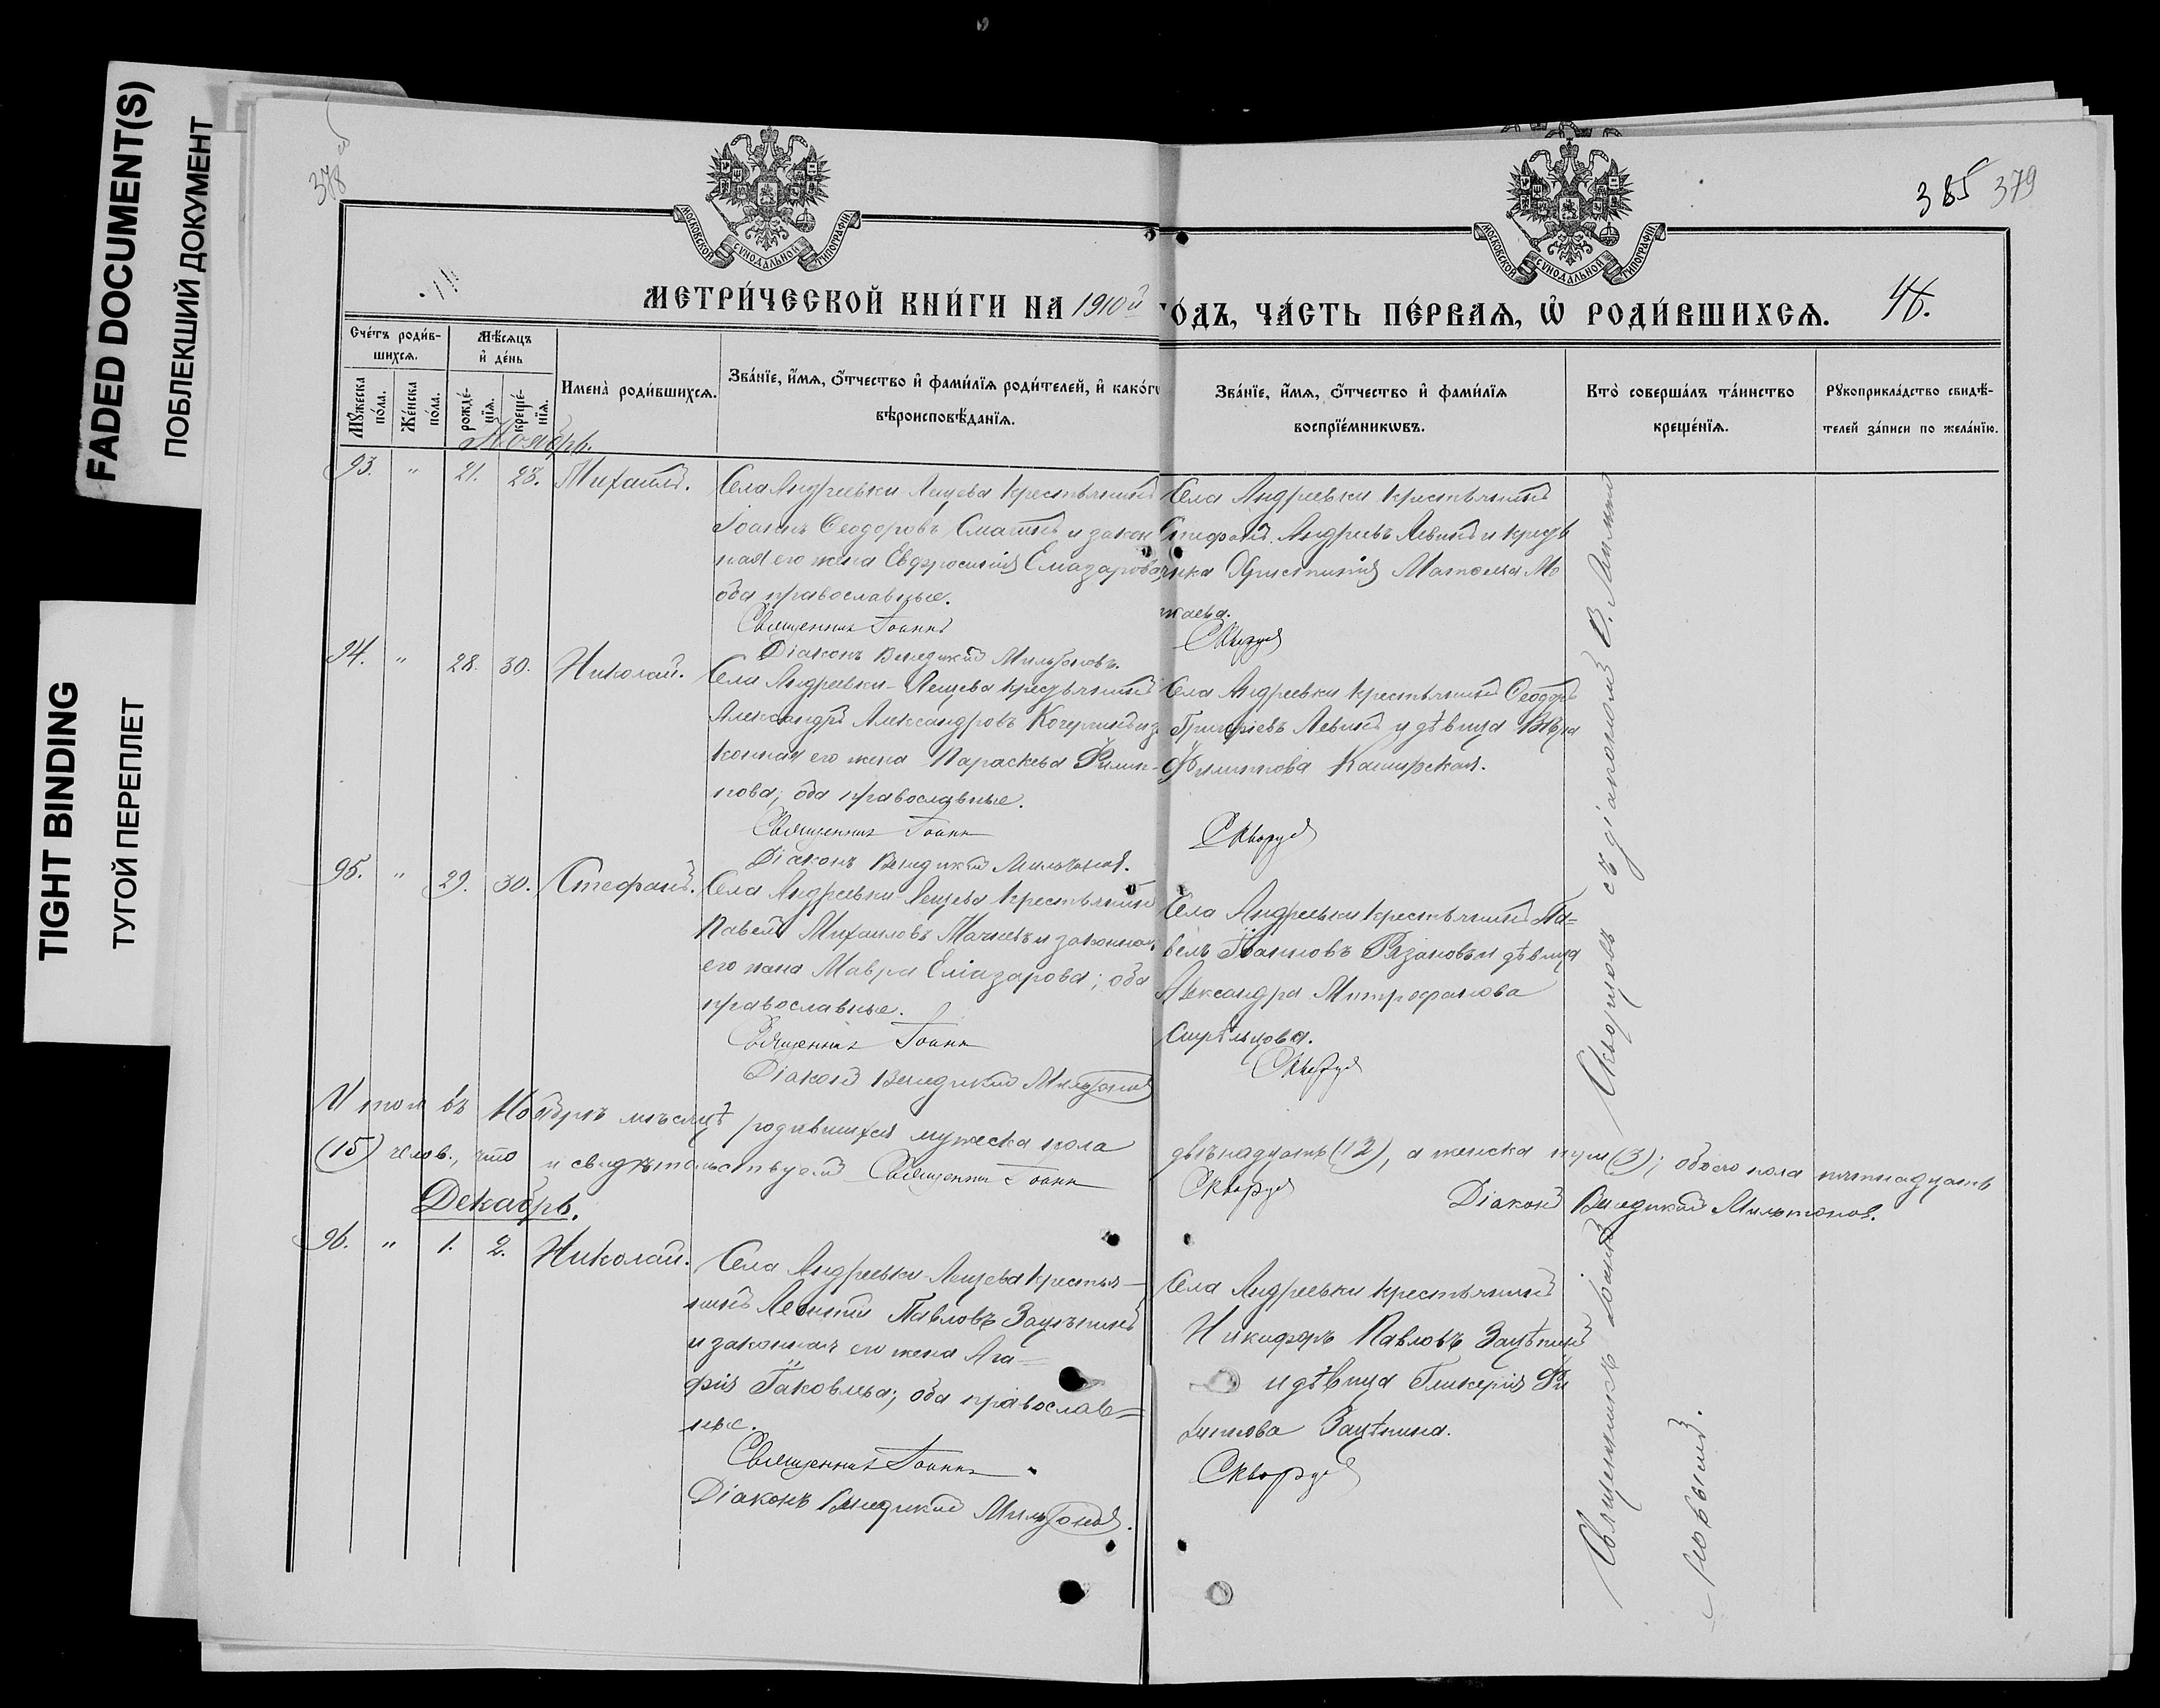 FADED DOCUMENT(S)
ПОБЛЕКШИЙ ДОКУМЕНТ
TIGHT BINDING
ТУГОЙ ПЕРЕПЛЕТ
378
385 379
МОСКОВСКОЙ СѴНОДАЛЬНОЙ ТИПОГРАФІИ
МОСКОВСКОЙ СѴНОДАЛЬНОЙ ТИПОГРАФІИ
МЕТРИ́ЧЕСКОЙ КНИ́ГИ НА 1910й
ГО́ДЪ, ЧА́СТЬ ПЕ́РВАѦ, Ѡ҆ РОДИ́ВШИХСѦ.
46.
Сче́тъ роди́в-
шихсѧ.
Мѣ́сѧцъ
и҆ де́нь
Мꙋ́жеска
по́ла.
Же́нска
по́ла.
рожде́-
нїѧ.
креще́-
нїѧ.
Имена̀ роди́вшихсѧ.
Зва́нїе, и҆́мѧ, ѻ҆́тчество и҆ фами́лїѧ роди́телей, и҆ како́гѡ
вѣроисповѣ́данїѧ.
Зва́нїе, и҆́мѧ, ѻ҆́тчество и҆ фами́лїѧ
воспрїе́мникѡвъ.
Кто̀ соверша́лъ та́инство
креще́нїѧ.
Рꙋкоприкла́дство свидѣ́-
телей за́писи по жела́нїю.
Ноябрь.
93. " 21. 23. Михаилъ.
Села Андреевки Лещева крестьянинъ
Іоаннъ Ѳеодоровъ и закон
ная его жена Евфросинія Елеазарова
оба православные.
Священникъ Іоаннъ
Діаконъ Венедиктъ Мильтоновъ.
Села Андреевки крестьянинъ
Стефанъ Андреевъ Левинъ и кресть
янка Христинія Матвѣева Мо
жаева.
Скворцовъ
94. " 28. 30. Николай.
Села Андреевки-Лещева крестьянинъ
Александръ Александровъ Кочергинъ и за
конная его жена Параскева Филип-
пова; оба православные.
Священникъ Іоаннъ
Діаконъ Венедиктъ Мильтоновъ.
Села Андреевки крестьянинъ Ѳеодоръ
Григоріевъ Левинъ и дѣвица Вѣра
Филиппова Каширская.
Скворцовъ
95. " 29. 30. Стефанъ.
Села Андреевки-Лещева крестьянинъ
Павелъ Михаиловъ и законная
его жена Мавра Елиазарова; оба
православные.
Священникъ Іоаннъ
Діаконъ Венедиктъ Мильтоновъ
Села Андреевки крестьянинъ Па=
велъ Іоанновъ Рязановъ и дѣвица
Александра Митрофанова
Стрѣльцова.
Скворцовъ
Итого въ Ноябрѣ мѣсяцѣ родившихся мужеска пола
двѣнадцать (12), а женска три (3); обоего пола пятнадцать
(15) челов., что и свидѣтельствуемъ Священникъ Іоаннъ
Скворцовъ
Діаконъ Венедиктъ Мильтоновъ.
Декабрь.
96. " 1. 2. Николай.
Села Андреевки-Лещева крестья-
нинъ Леонтій Павловъ Зацѣпинъ
и законная его жена Ага=
фія Іаковлева; оба православ=
ные.
Священникъ Іоаннъ
Діаконъ Венедиктъ Мильтоновъ.
Села Андреевки крестьянинъ
Никифоръ Павловъ Зацѣпинъ
и дѣвица Гликерія Фи
липпова Зацѣпина.
Скворцовъ
Священникъ Іоаннъ Скворцовъ съ діакономъ В. Мильто
новымъ.